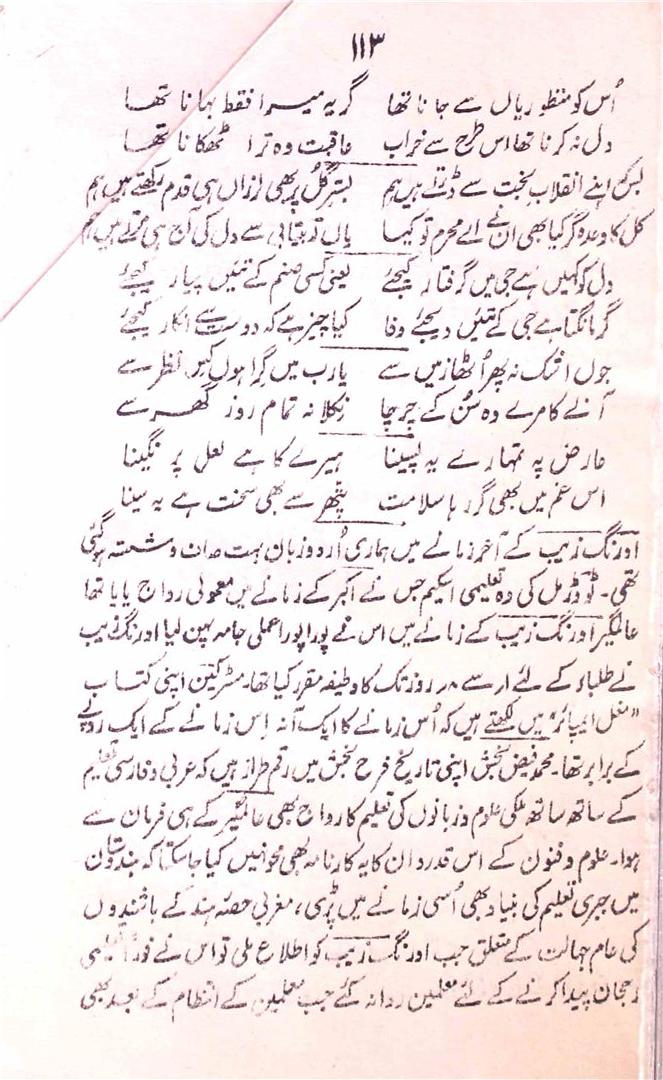 ۱۱۳
اُس کو منظور یاں سے جانا تھا گریہ میرا فقط بہانا تھا
دل نہ کرنا تھا اس طرح سے خراب عاقبت وہ ترا ٹھکانا تھا
بسکہ اپنے انقلاب بخت سے ڈرتے ہیں ہم بستر گُل پر بھی لرزاں ہی قدم رکھتے ہیں ہم
کل کا وعدہ گر کیا بھی ان نے اے محرم تو کیا یاں تو بیتابی سے دل کی آج ہی مرتے ہیں ہم
دل کو کہیں ہے جی میں گرفتار کیجئے یعنی کسی صنم کے تئیں پیار کیجئے
گر مانگتا ہے جی کے تئیں دیجئے وفا کیا چیز ہے کہ دوست سے انکار کیجئے
جوں اشک نہ پھر اُٹھا زمیں سے یارب میں گرا ہوں کس نظر سے
آنے کا مرے وہ سُن کے چرچا نکلا نہ تمام روز گھر سے
عارض پہ تمہارے یہ پسینا ہیرے کا ہے لعل پر نگینا
اس غم میں بھی گر رہا سلامت پتھر سے بھی سخت ہے یہ سینا
اورنگ زیب کے آخر زمانے میں ہماری اُردو زبان بہت صاف و شستہ ہو گئی
تھی۔ ٹوڈرمل کی وہ تعلیمی اسکیم جس نے اکبر کے زمانے میں معمولی رواج پایا تھا
عالمگیر اورنگ زیب کے زمانے میں اس نے پورا پورا عملی جامہ پہن لیا اورنگ زیب
نے طلباء کے لئے ۱ر سے ۸ر روز تک کا وظیفہ مقرر کیا تھا۔ مسٹر کین اپنی کتاب
"مغل ایمپائر" میں لکھتے ہیں کہ اُس زمانے کا ایک آنہ اِس زمانے کے ایک روپے
کے برابر تھا۔ محمد فیض بخش اپنی تاریخ فرح بخش میں رقم طراز ہیں کہ عربی و فارسی تعلیم
کے ساتھ ساتھ ملکی علوم و زبانوں کی تعلیم کا رواج بھی عالمگیر کے ہی فرمان سے
ہوا۔ علوم و فنون کے اس قدردان کا یہ کارنامہ بھی محو نہیں کیا جا سکتا کہ ہندوستان
میں جبری تعلیم کی بنیاد بھی اُسی زمانے میں پڑی، مغربی حصۂ ہند کے باشندوں
کی عام جہالت کے متعلق جب اورنگ زیب کو اطلاع ملی تو اس نے فوراً تعلیمی
رجحان پیدا کرنے کے لئے معلمین روانہ کئے جب معلمین کے انتظام کے بعد بھی